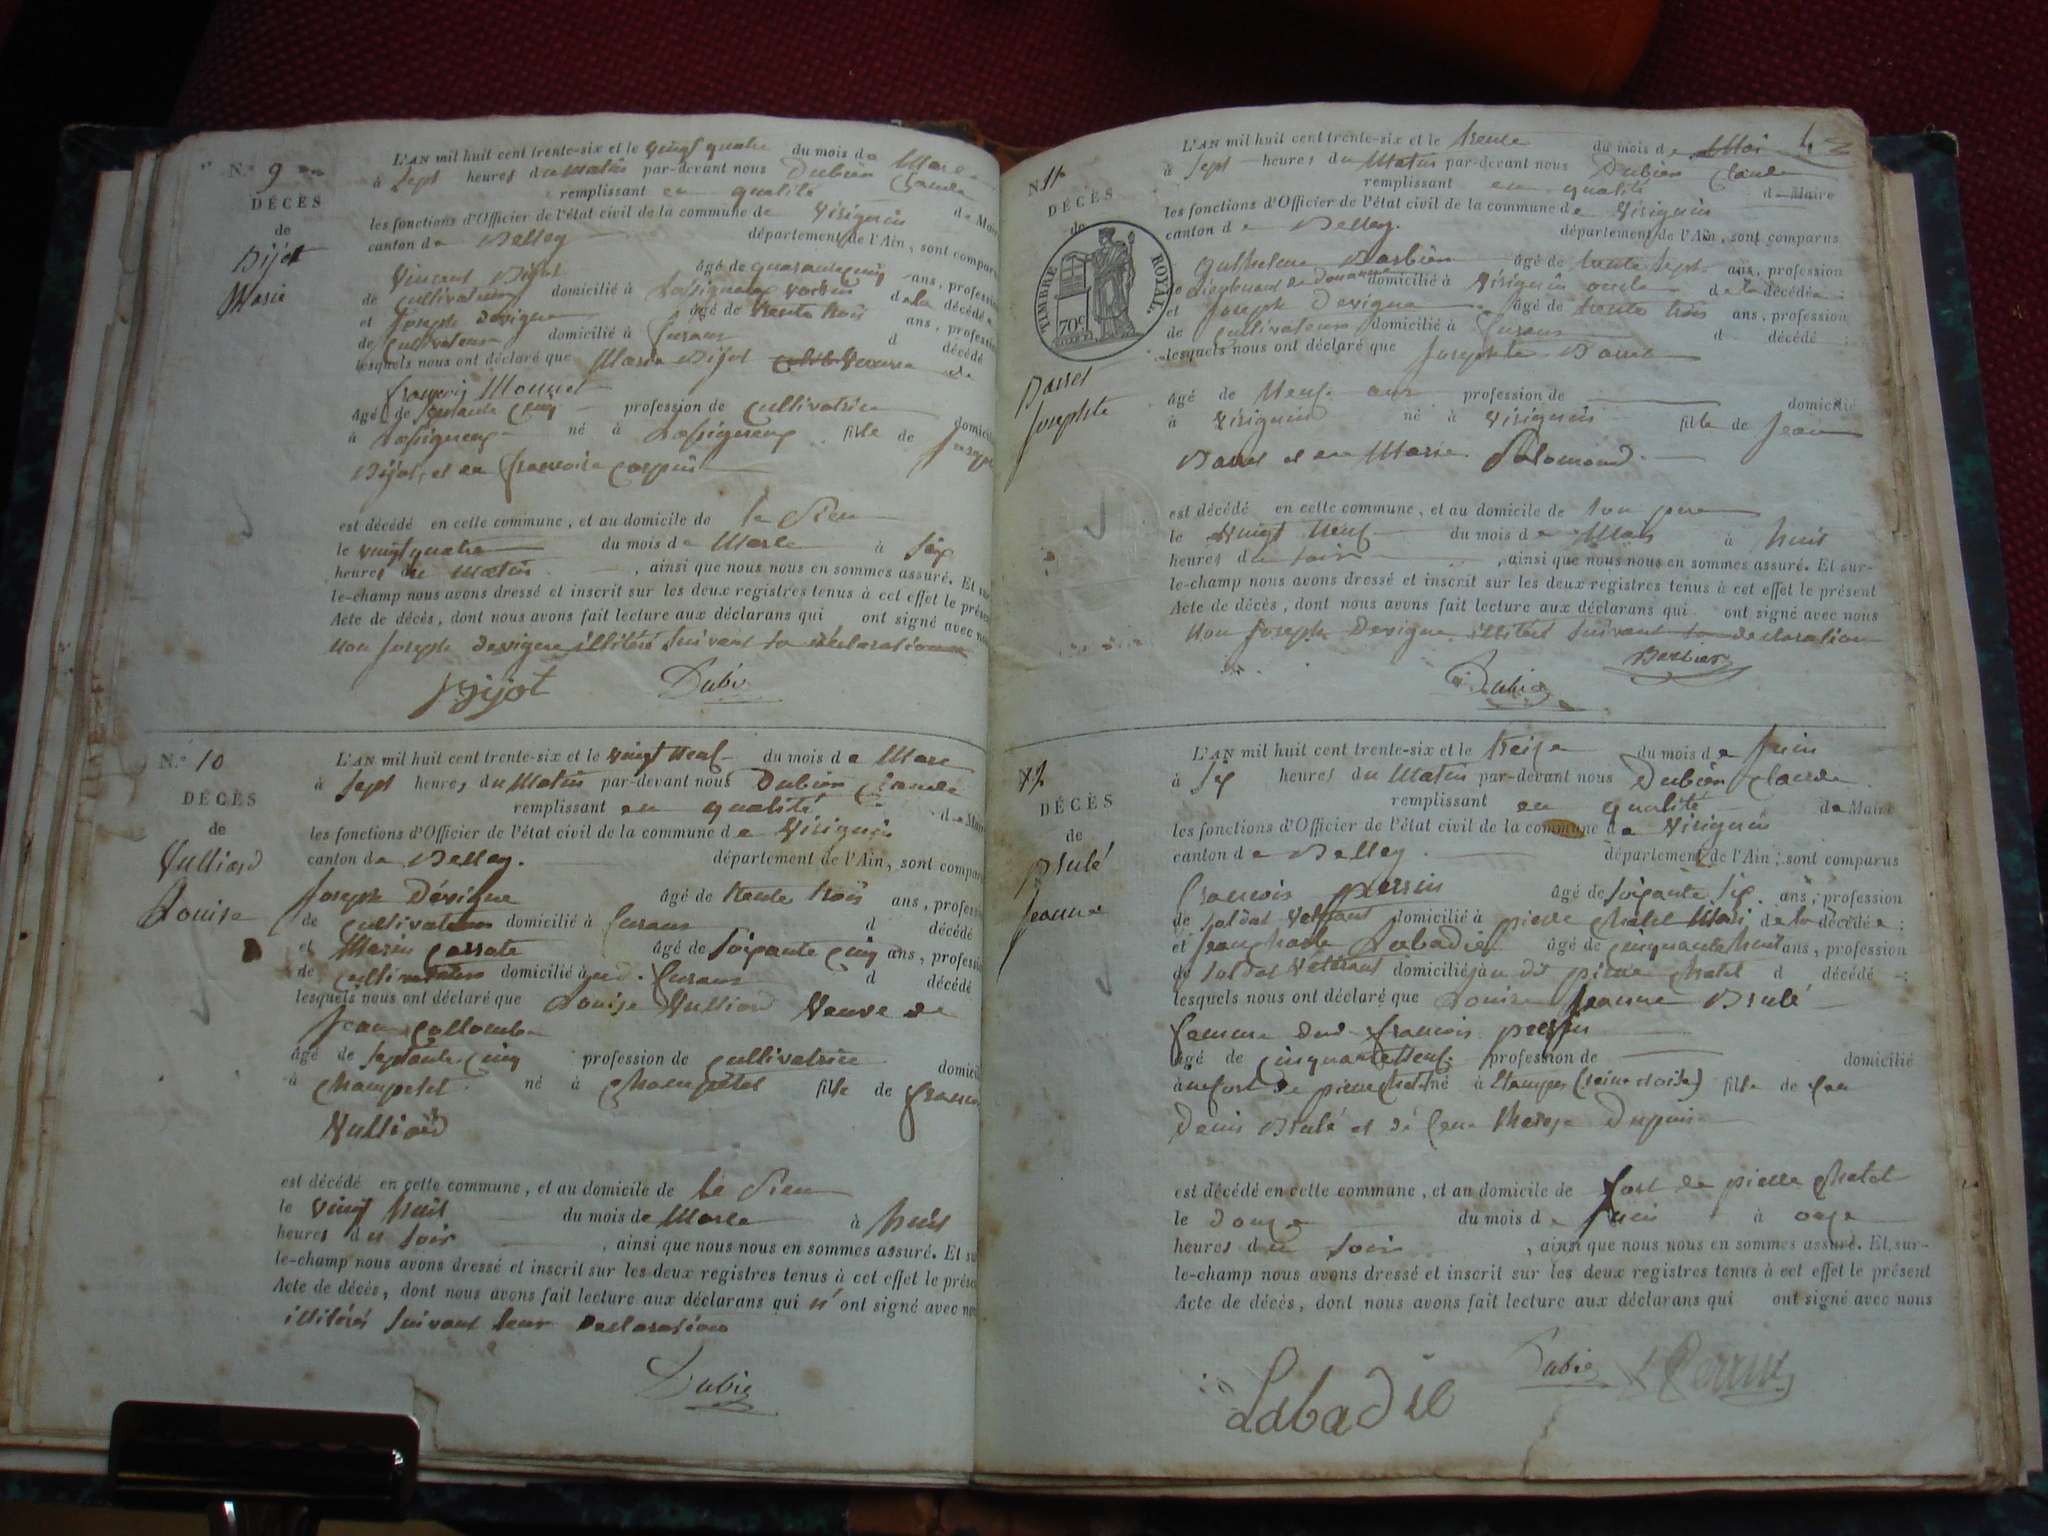 N.º 9
DÉCÈS
de
Bijot
Marie
L'AN mil huit cent trente-six et le vingt quatre du mois de Mars
à Sept heures du Matin par-devant nous Dubien Claude
remplissant en qualité de Maire
les fonctions d'Officier de l'état civil de la commune de Virignin
canton de Belley département de l'Ain, sont comparus
Vincent Bijot âgé de quarante cinq ans, profession
de cultivateur domicilié à Lassigneux voisin de la décédée
et Joseph Devigne âgé de trente trois ans, profession
de cultivateur domicilié à Lurans d décédé
lesquels nous ont déclaré que Marie Bijot Veuve de
françois Monnet
âgé de septante cinq profession de Cultivatrice domicilié
à Lassigneux né à Lassigneux fille de Joseph
Bijot, et en françoise
est décédé en cette commune, et au domicile de le Sien
le vingt quatre du mois de Mars à Six
heures du Matin, ainsi que nous nous en sommes assuré. Et sur-
le-champ nous avons dressé et inscrit sur les deux registres tenus à cet effet le présent
Acte de décès, dont nous avons fait lecture aux déclarans qui ont signé avec nous
non Joseph devigne illitéré suivant sa déclaration
Bijot Dubien
N.º 10
DÉCÈS
de
Vulliod
Louise
L'AN mil huit cent trente-six et le vingt neuf du mois de Mars
à Sept heures du Matin par-devant nous Dubien Claude
remplissant en qualité de Maire
les fonctions d'Officier de l'état civil de la commune de Virignin
canton de Belley. département de l'Ain, sont comparus
Joseph Dévigne âgé de trente trois ans, profession
de cultivateur domicilié à Lurans d décédé
et Marin Carrate âgé de soixante cinq ans, profession
de cultivateur domicilié à Lurans d décédé
lesquels nous ont déclaré que Louise Vulliod Veuve de
Jean Collomb
âgé de septante cinq profession de cultivatrice domicilié
à Champetel né à Champetel fille de
Vulliod
est décédé en cette commune, et au domicile de le Sien
le vingt huit du mois de Mars à huit
heures du soir, ainsi que nous nous en sommes assuré. Et sur-
le-champ nous avons dressé et inscrit sur les deux registres tenus à cet effet le présent
Acte de décès, dont nous avons fait lecture aux déclarans qui n'ont signé avec nous
illitérés suivant leur déclaration
Dubien
N. 11
DÉCÈS
de
TIMBRE ROYAL
70c
Barret
Josephte
L'AN mil huit cent trente-six et le trente du mois de Mai
à Sept heures du Matin par-devant nous Dubien Claude
remplissant en qualité de Maire
les fonctions d'Officier de l'état civil de la commune de Virignin
canton de Belley. département de l'Ain, sont comparus
Barbier âgé de trente sept ans, profession
de Lieutenant de douanne domicilié à Virignin oncle de la décédée;
et Joseph Devigne âgé de trente trois ans, profession
de cultivateur domicilié à Lurans d décédé;
lesquels nous ont déclaré que Josephte Barret
âgé de Neuf ans profession de domicilié
à Virignin né à Virignin fille de Jean
Barret et en Marie
est décédé en cette commune, et au domicile de son père
le vingt neuf du mois de Mai à huit
heures du soir, ainsi que nous nous en sommes assuré. Et sur-
le-champ nous avons dressé et inscrit sur les deux registres tenus à cet effet le présent
Acte de décès, dont nous avons fait lecture aux déclarans qui ont signé avec nous
non Joseph Devigne illitéré suivant sa declaration
Barbier
Dubien
12
DÉCÈS
de
Brulé
Jeanne
L'AN mil huit cent trente-six et le treize du mois de Juin
à Six heures du Matin par-devant nous Dubien Claude
remplissant en qualité de Maire
les fonctions d'Officier de l'état civil de la commune de Virignin
canton de Belley département de l'Ain, sont comparus
François perrin âgé de soixante six ans, profession
de soldat vétérant domicilié à pierre chatel Mari de la décédée;
et Jean Charle Labadie âgé de cinquante huit ans, profession
de soldat vétérant domicilié au dit pierre chatel d décédé;
lesquels nous ont déclaré que Louise Jeanne Brulé
femme dud. françois perrin
âgé de cinquante neuf profession de domicilié
au fort de pierre chatel né à Etampes (seine et oise) fille de feu
Denis Brulé et de feue Therese Dupuis
est décédé en cette commune, et au domicile de fort de pierre chatel
le douze du mois de Juin à onze
heures du soir, ainsi que nous nous en sommes assuré. Et sur-
le-champ nous avons dressé et inscrit sur les deux registres tenus à cet effet le présent
Acte de décès, dont nous avons fait lecture aux déclarans qui ont signé avec nous
Dubien Perrin
Labadie